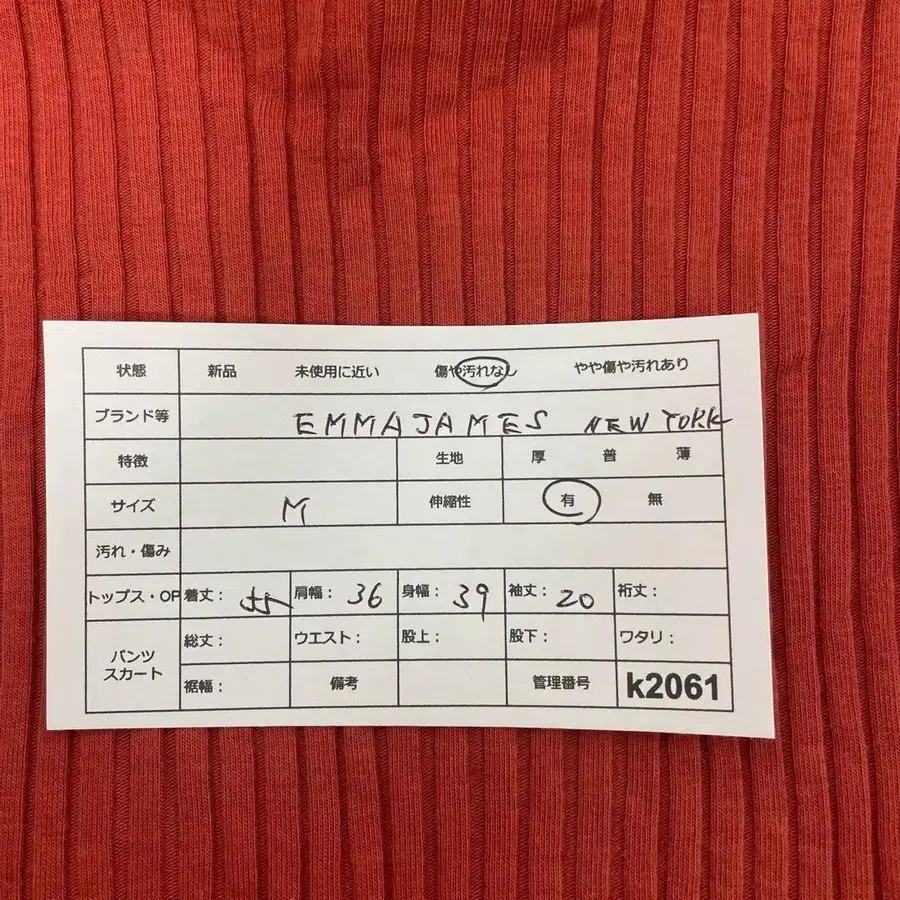 状態 新品 未使用に近い 傷や汚れなし やや傷や汚れあり
ブランド等 EMMAJAMES NEW YORK
特徴 生地 厚 普 薄
サイズ M 伸縮性 有 無
汚れ・傷み
トップス・OP 着丈： 55 肩幅： 36 身幅： 39 袖丈： 20 裄丈：
パンツ スカート 総丈： ウエスト： 股上： 股下： ワタリ：
裾幅： 備考 管理番号 k2061